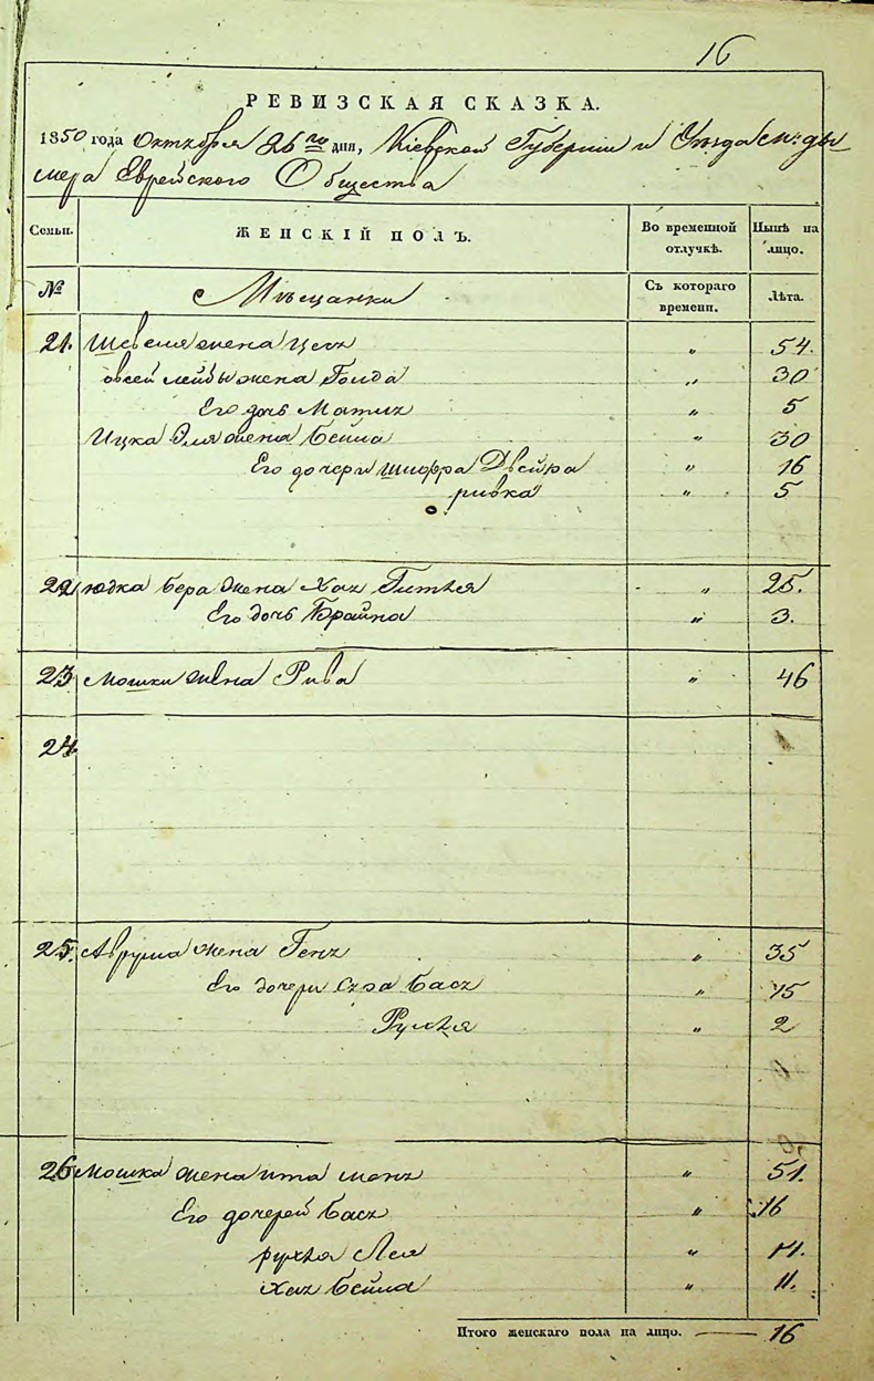 16
РЕВИЗСКАЯ СКАЗКА.
1850 года Октября 26го дня, Кіевской Губерніи и Уезда м: Ды
мера Еврейского Общества
Семьи. ЖЕНСКІЙ ПОЛЪ. Во временной отлучкѣ. Нынѣ на лицо.
№ Мещанки Съ котораго времени. Лѣта.
21. жена Цеся " 54.
Овсей Лейбы жена Голда " 30
Его дочь Матля " 5
Ицка Эля жена Бейла " 30
Его дочери Шифра Двейра " 16
ривка " 5
22 Юдка Бера жена Хая Гитля " 25.
Его дочь Брайна " 3.
23 Мошки жена Рива " 46
24
25. Аврума жена Геня " 35
Его дочери Сура Бася " 15
Рухля " 2
26 Мошка жена ита " 51.
Его дочерей Бася " 16
рухля Лея " 14.
Хая Бейла " 11.
Итого женскаго пола на лицо. — 16